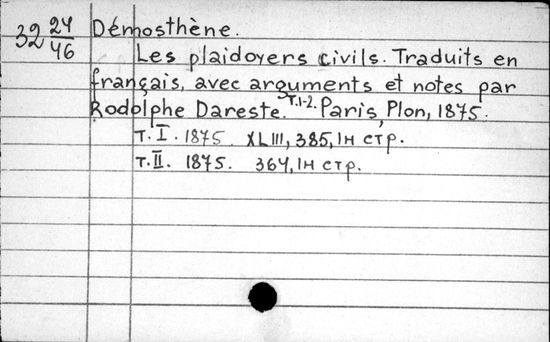 32 24/46 Démosthène.
Les plaidoyers civils. Traduits en
français, avec arguments et notes par
Rodolphe Dareste. T.1-2. Paris, Plon, 1875.
T. I. 1875. XLIII, 385, 1н стр.
T. II. 1875. 364, 1н стр.